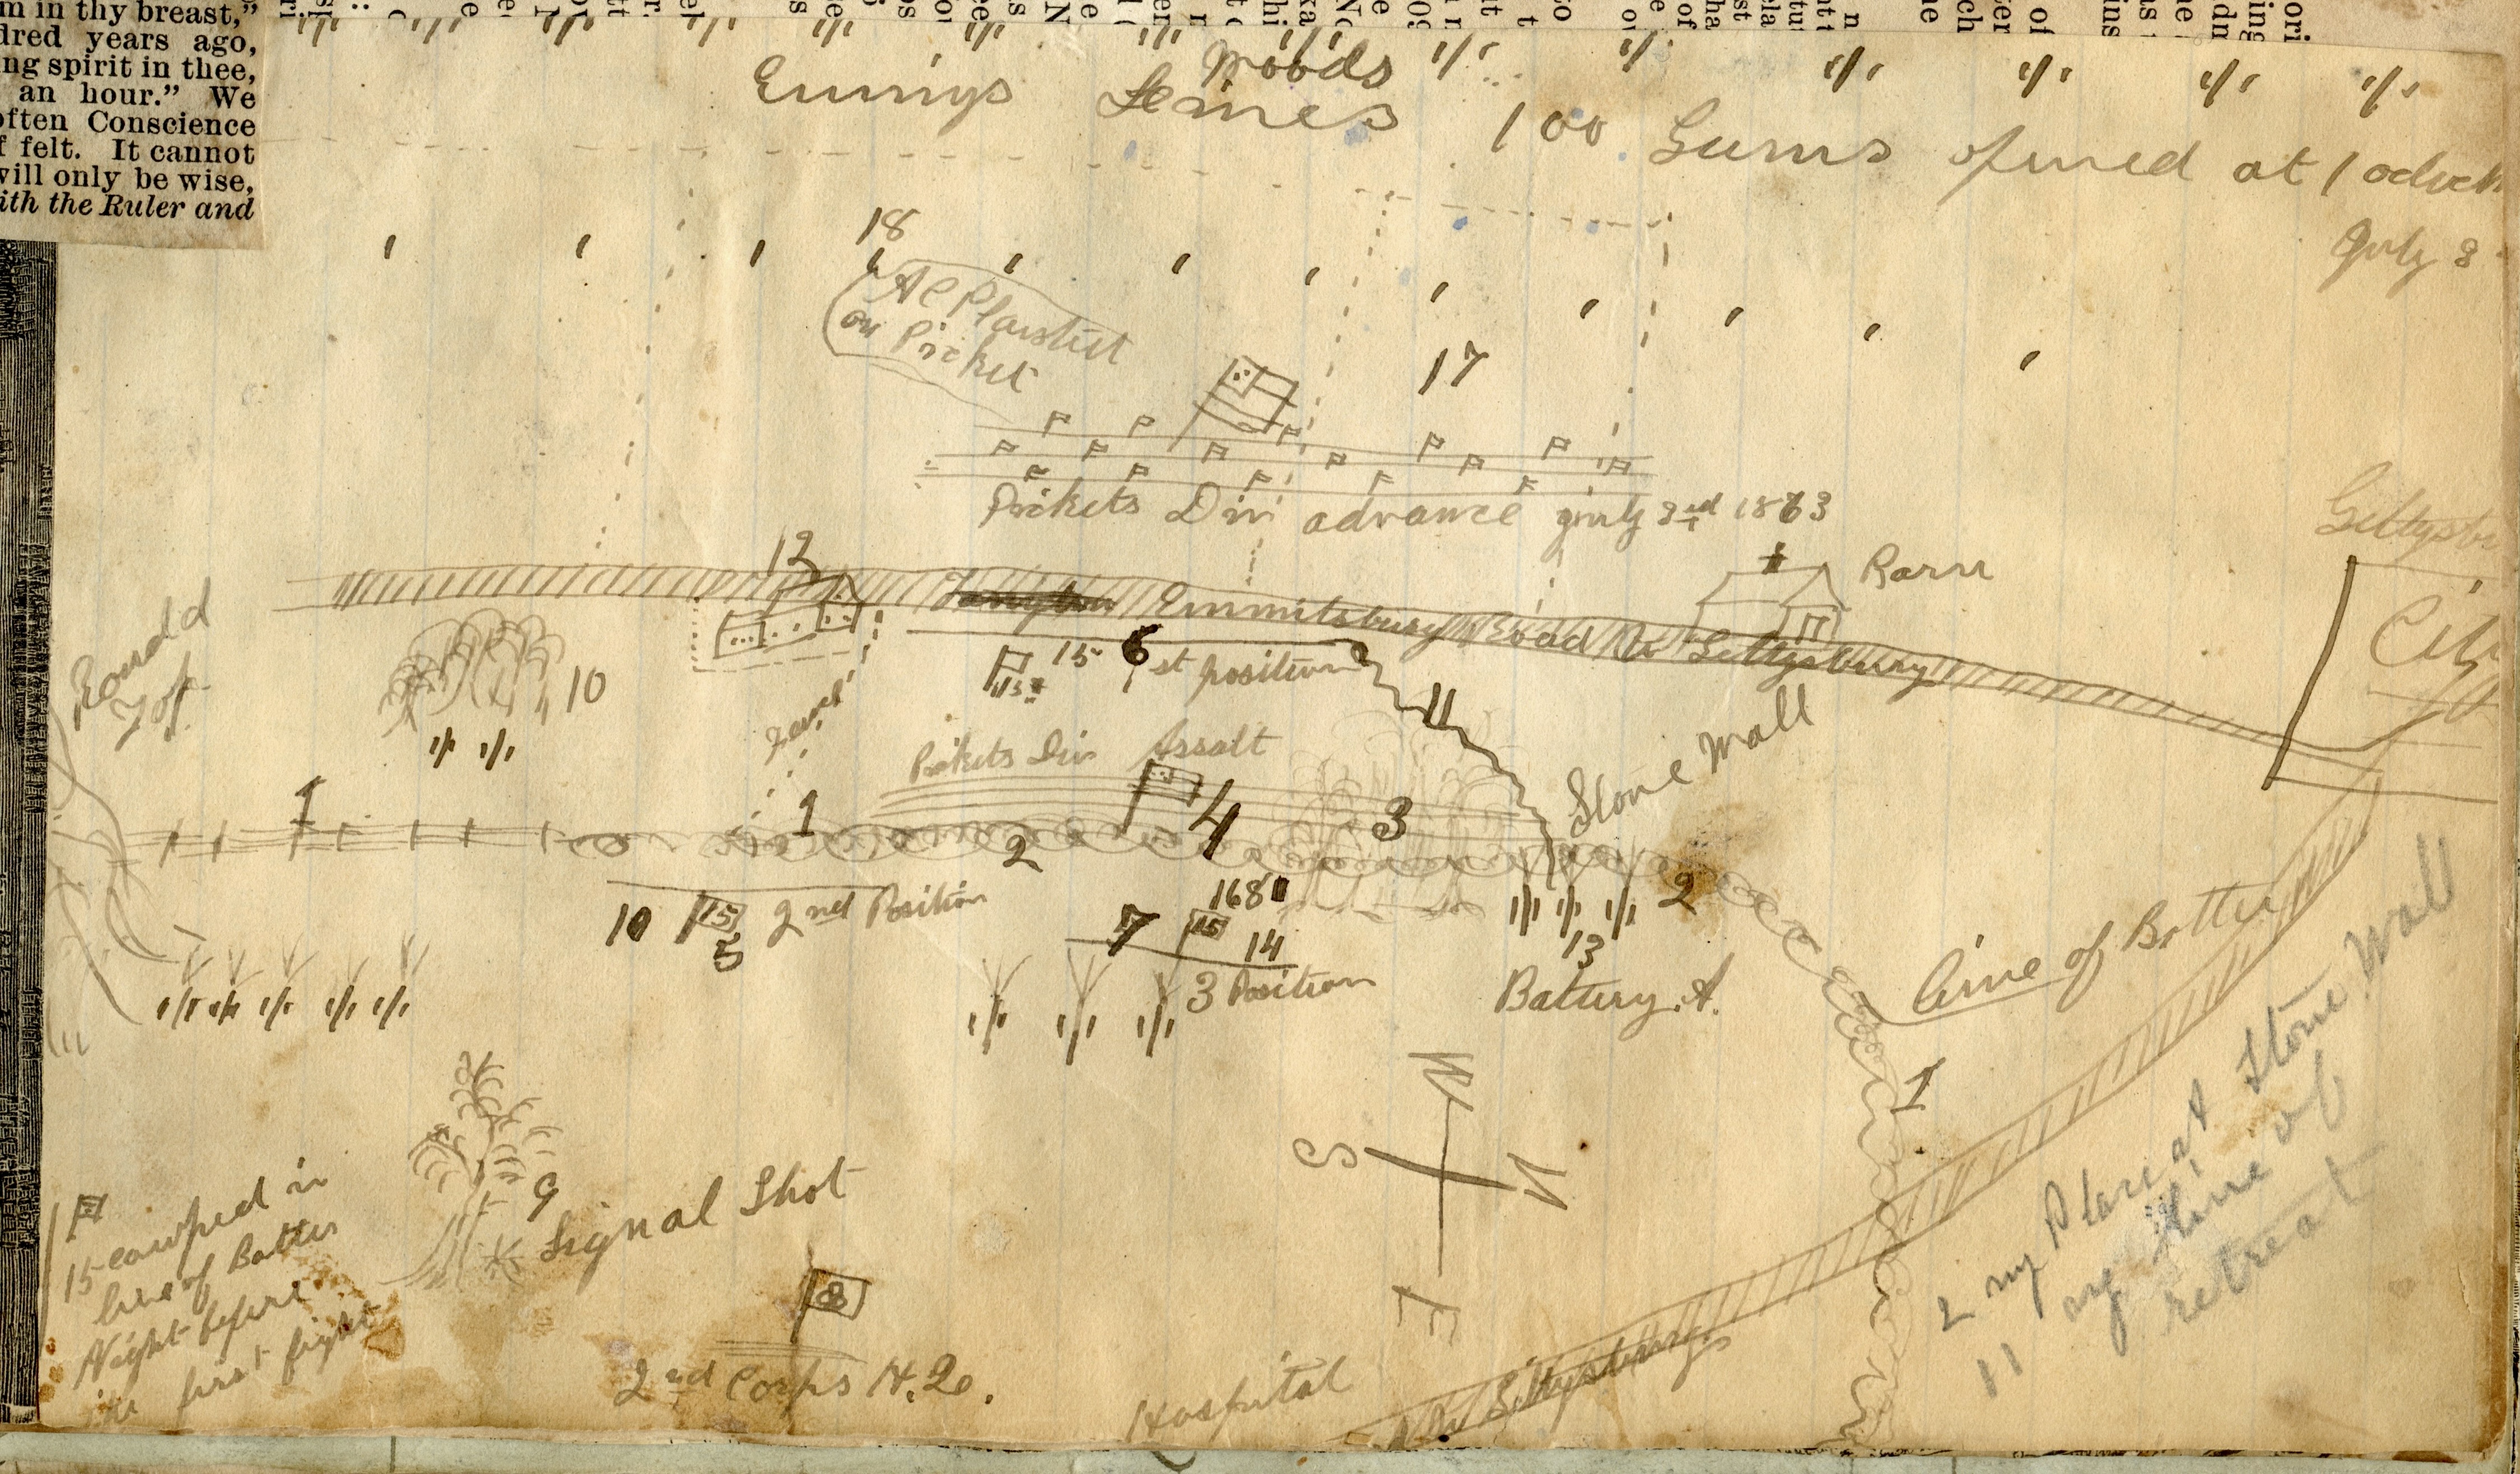 m in thy breast,"
dred years ago,
ng spirit in thee,
an hour." We
often Conscience
f felt. It cannot
will only be wise,
ith the Ruler and
Woods
Enimys Leines 100 Guns opined at 1 oclock
July 3
18
Al Plaisted
on Picket
17
Pickets Div advance July 3rd 1863
Gettysb
City
12
Barn
Emmitsburg Road to Gettysburg
Round
Top
10
15 6 1st position
11
Stone Wall
Lane
Pickets Div Assalt
1
1
2
4
3
2
10 15 2nd Position
5
168
7 15
14
3 Position
13
Battery A.
Line of Battle
1
W
S
N
E
9
Signal Shot
15 camped in
line of Battle
Night before
the first fight
8
2nd Corps H.Q.
Hospital
To Gettysburg
2 my Place at Stone Wall
11 my line of
retreat